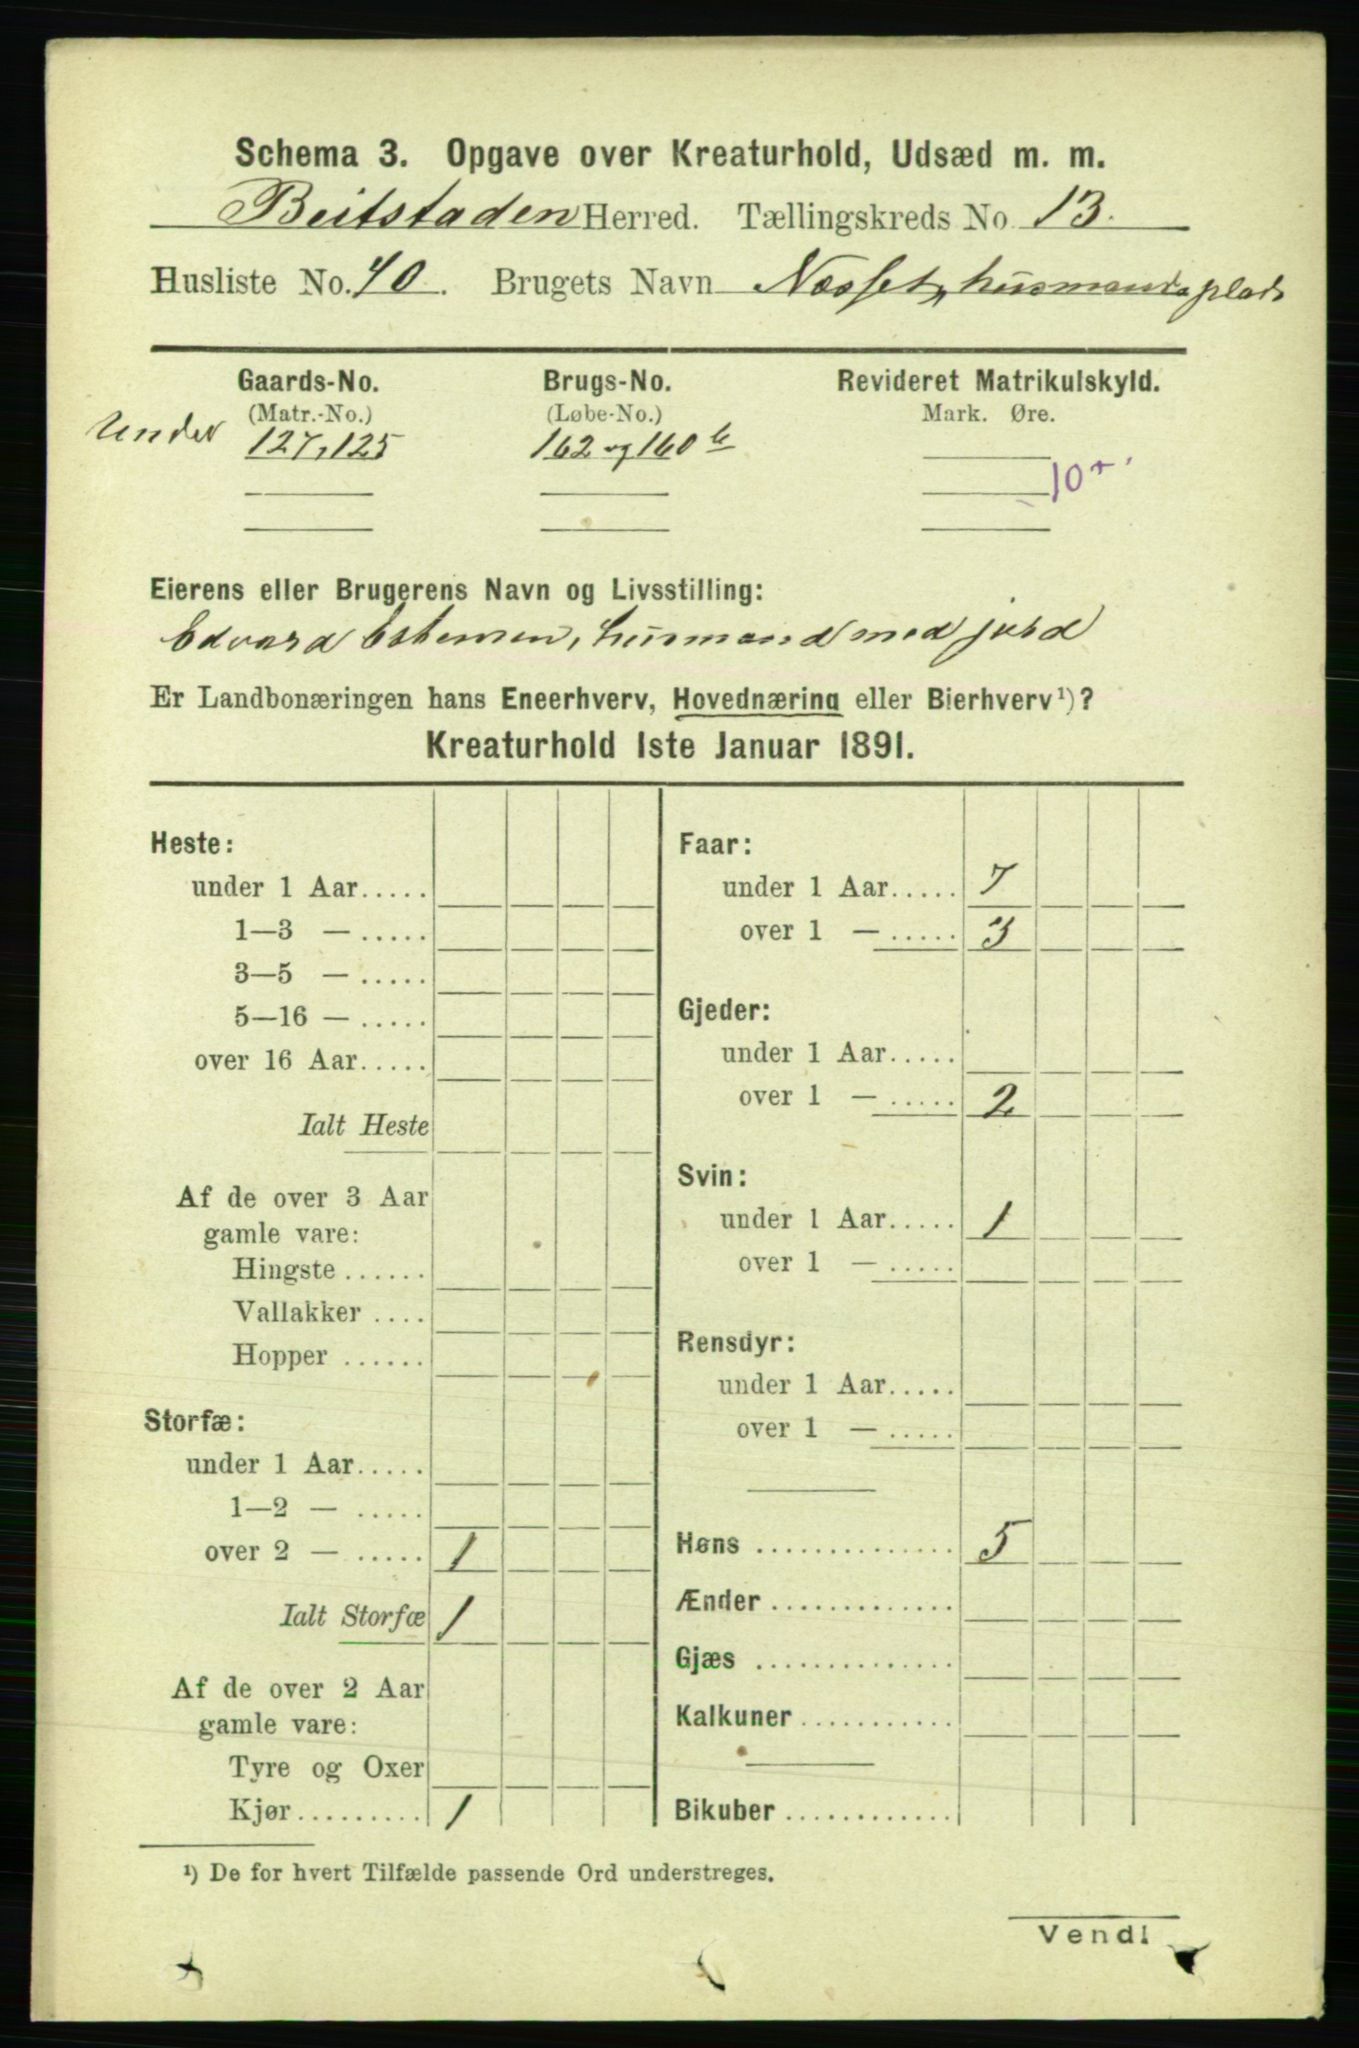 Schema 3. Opgave over Kreaturhold, Udsæd m. m.
Beitstaden Herred. Tællingskreds No. 13.
Husliste No. 40. Brugets Navn Næsset, husmandsplads
Gaards-No. Brugs-No. Revideret Matrikulskyld.
(Matr.-No.) (Løbe-No.) Mark. Øre.
Under 127, 125 162 og 160 b
10
Eierens eller Brugerens Navn og Livsstilling:
Edvard Estensen, husmand med jord
Er Landbonæringen hans Eneerhverv, Hovednæring eller Bierhverv¹)?
Kreaturhold 1ste Januar 1891.
Heste:
under 1 Aar.....
1—3 — .....
3—5 — .....
5—16 — .....
over 16 Aar.....
Ialt Heste
Af de over 3 Aar
gamle vare:
Hingste ......
Vallakker ....
Hopper ......
Storfæ:
under 1 Aar.....
1—2 — .....
over 2 — ..... 1
Ialt Storfæ 1
Af de over 2 Aar
gamle vare:
Tyre og Oxer
Kjør......... 1
Faar:
under 1 Aar..... 7
over 1 — ..... 3
Gjeder:
under 1 Aar.....
over 1 — ..... 2
Svin:
under 1 Aar..... 1
over 1 — .....
Rensdyr:
under 1 Aar.....
over 1 — .....
Høns .............. 5
Ænder .............
Gjæs ..............
Kalkuner ...........
Bikuber ............
¹) De for hvert Tilfælde passende Ord understreges.
Vend!